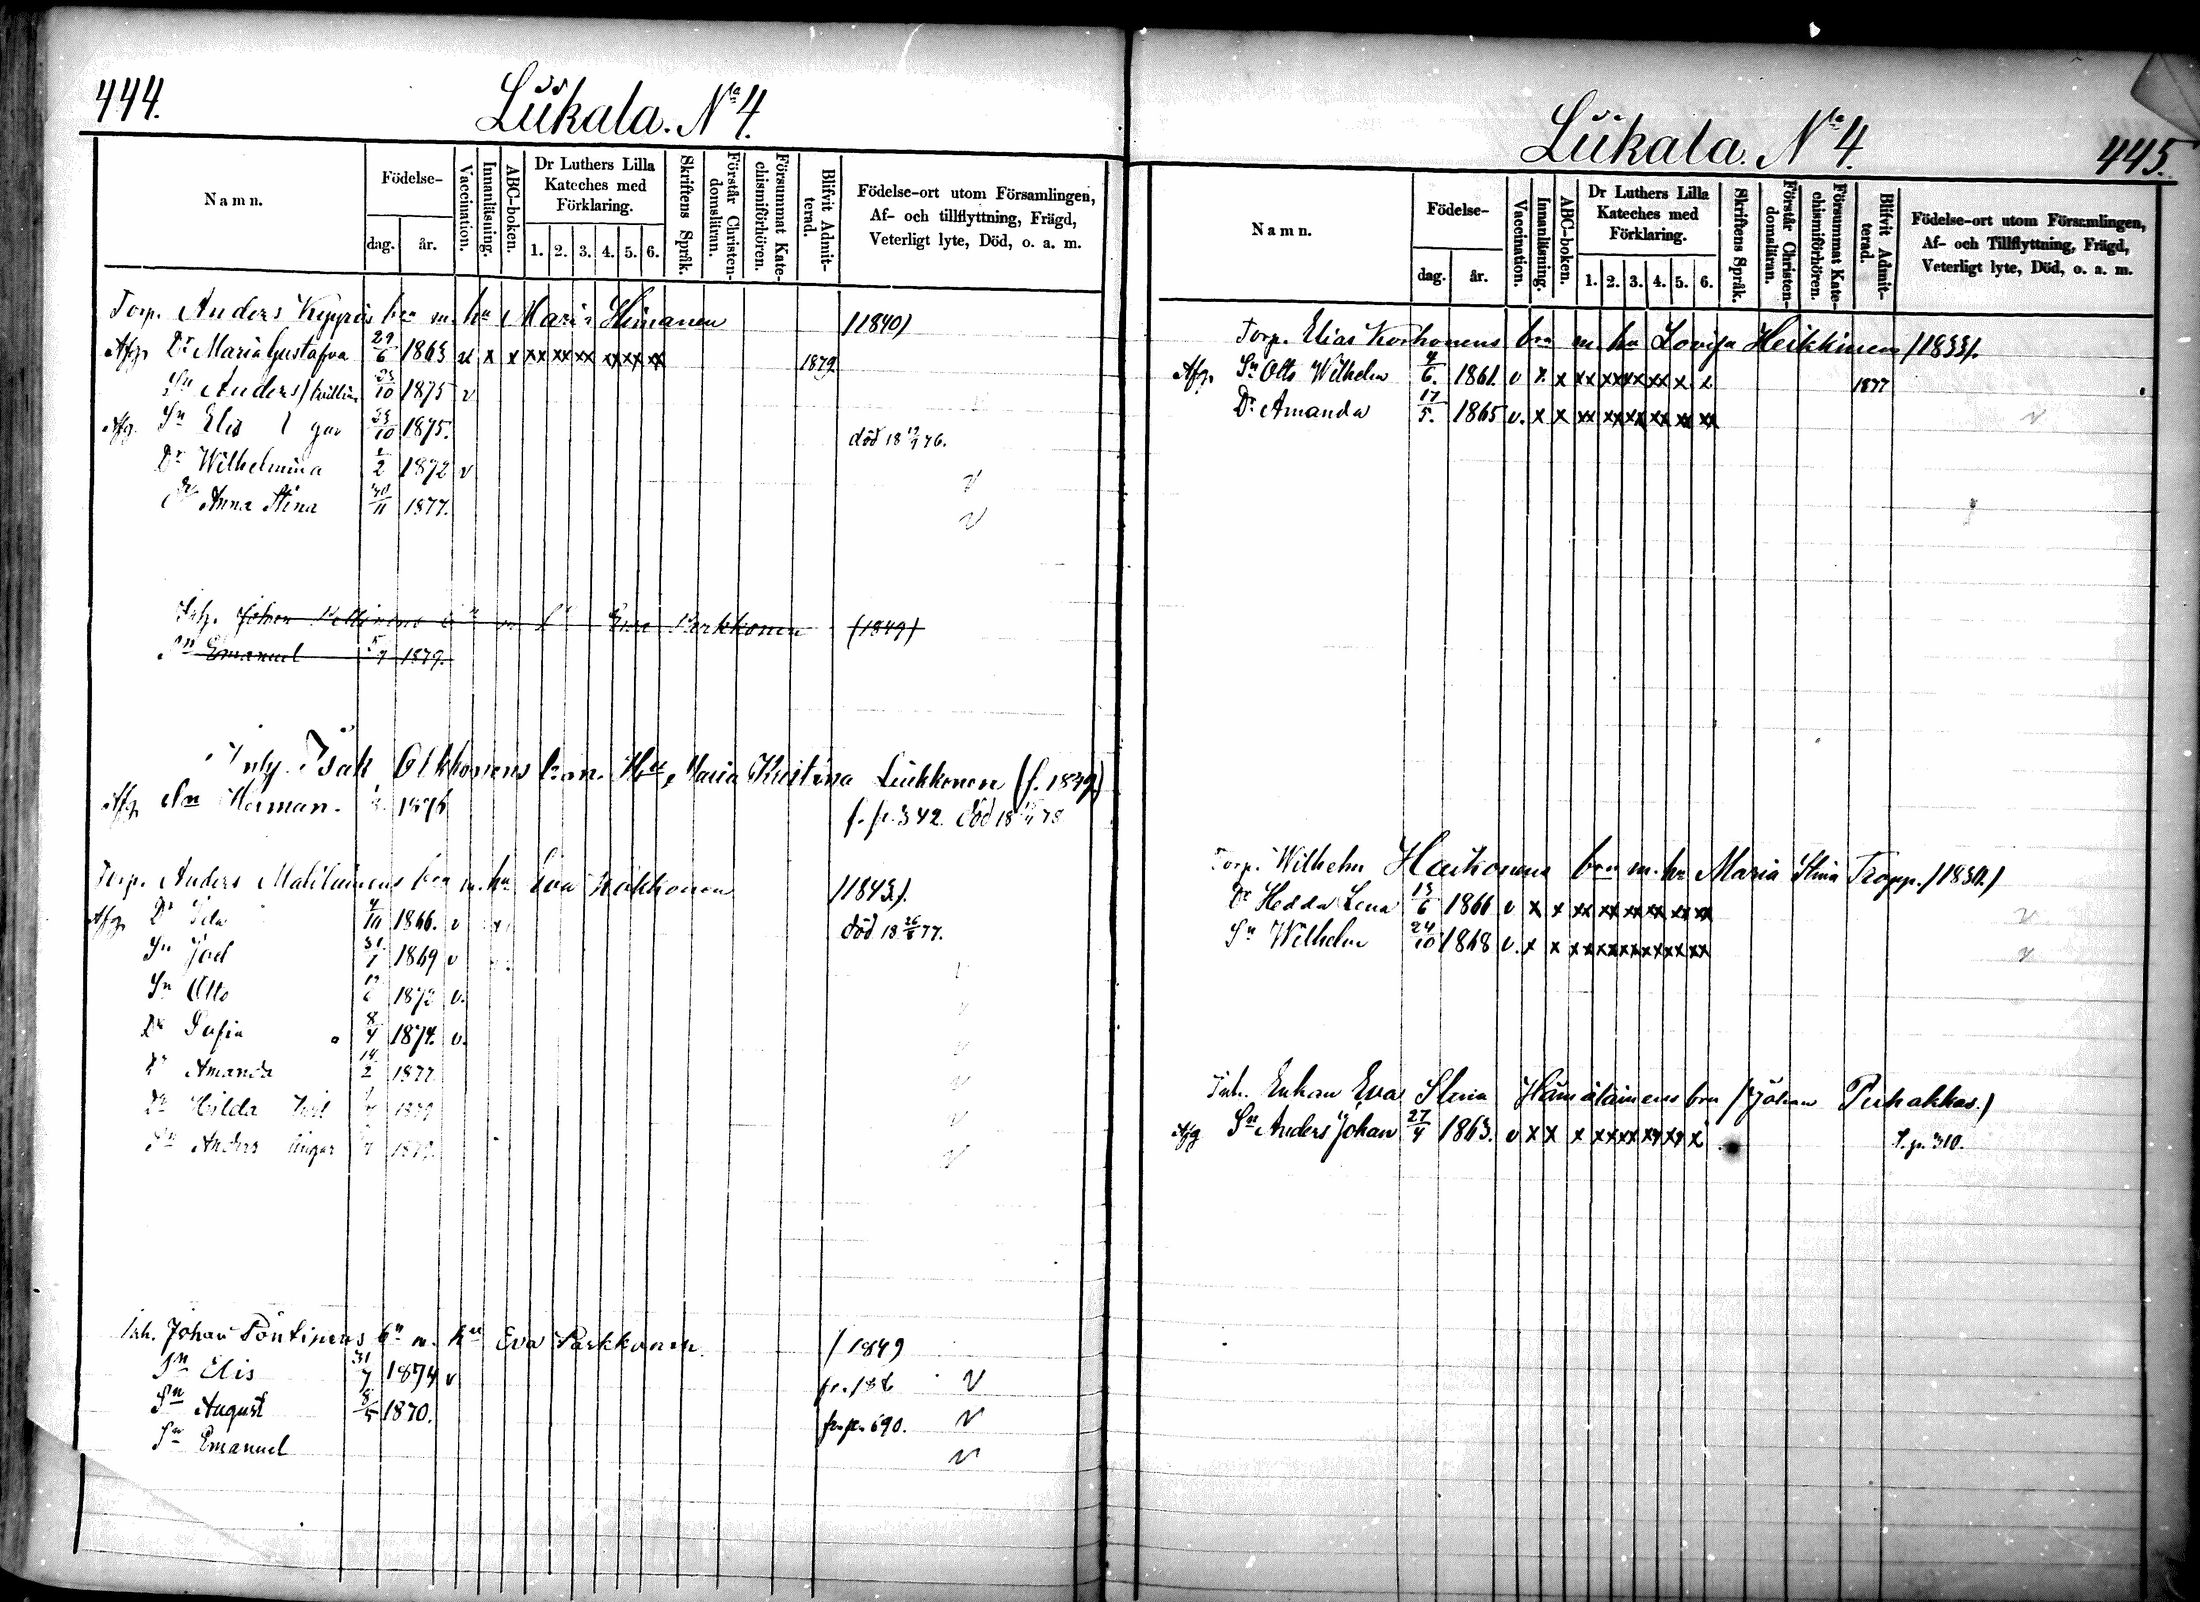 444.
Liikala. No 4.
Namn.
Födelse-
dag.
år.
Vaccination.
Innanläsning.
ABC-boken.
Dr Luthers Lilla Kateches med Förklaring.
1. 2. 3. 4. 5. 6.
Skriftens Språk.
Förstår Christen-domsläran.
Försummat Kate-chismiförhören.
Blifvit Admit-terad.
Födelse-ort utom Församlingen,
Af- och tillflyttning, Frägd,
Veterligt lyte, Död, o. a. m.
Torp. Anders bn m. hu Maria Himanen /1840/
Afg. Dr Maria Gustafva 29/6 1863 v x x xx xx xx xx xx xx 1879
Sn Anders /tvillin 23/10 1875 v
Afg. Sn Elis gar 23/10 1875. död 18 76.
Dr Wilhelmina 2 1872 v v
Dr Anna Stina 30/11 1877. v
Inh. Johan Eva Parkkonen (1849)
Sn Emanuel 5/7 1879.
Inhy. Isak Olkkonens bn m. Hu Maria Kristina Liukkonen (f. 1849)
Afg Sn Herman. 1876 f. p. 342. död 18 78
Torp. Anders Malilainens bn m. hu Eva /1843/.
Afg. Dr Ida 4/10 1866. v död 18 26/6 77.
Sn Joel 31/1 1869 v
Sn Otto 1872 v.
Dr Sofia 8/4 1874. v.
Dr Amanda 14/2 1877
Dr Hilda 1879
Sn Anders 1879.
Inh. Johan Pöntinens bn m. hu Eva Parkkonen. / 1849
Sn Elis 31/7 1874 v v
Sn August 8/5 1870. fr. p. 690. v
Sn Emanuel v
Liikala. No 4.
445.
Namn.
Födelse-
dag.
år.
Vaccination.
Innanläsning.
ABC-boken.
Dr Luthers Lilla Kateches med Förklaring.
1. 2. 3. 4. 5. 6.
Skriftens Språk.
Förstår Christen-domsläran.
Försummat Kate-chismiförhören.
Blifvit Admit-terad.
Födelse-ort utom Församlingen,
Af- och Tillflyttning, Frägd,
Veterligt lyte, Död, o. a. m.
Torp. Elias Korhonens bn m. hu Lovisa Heikkinen /1833/.
Afg. Sn Otto Wilhelm 4/6. 1861. v x x xx xx xx xx x x 1877
Dr Amanda 17/5. 1865 v. x x xx xx xx xx xx xx v
Torp. Wilhelm bn m. hu Maria Stina Tropp. /1834./
Dr Hedda Lena 13/6 1866 v x x xx xx xx xx xx xx v
Sn Wilhelm 24/10 1868 v. x x xx xx xx xx xx xx v
Inh. Enkan Eva Stina Hämäläinens bn / Johan Purhakkas. /
Afg Sn Anders Johan 27/4 1863. v x x x xx xx xx xx x S. p. 310.